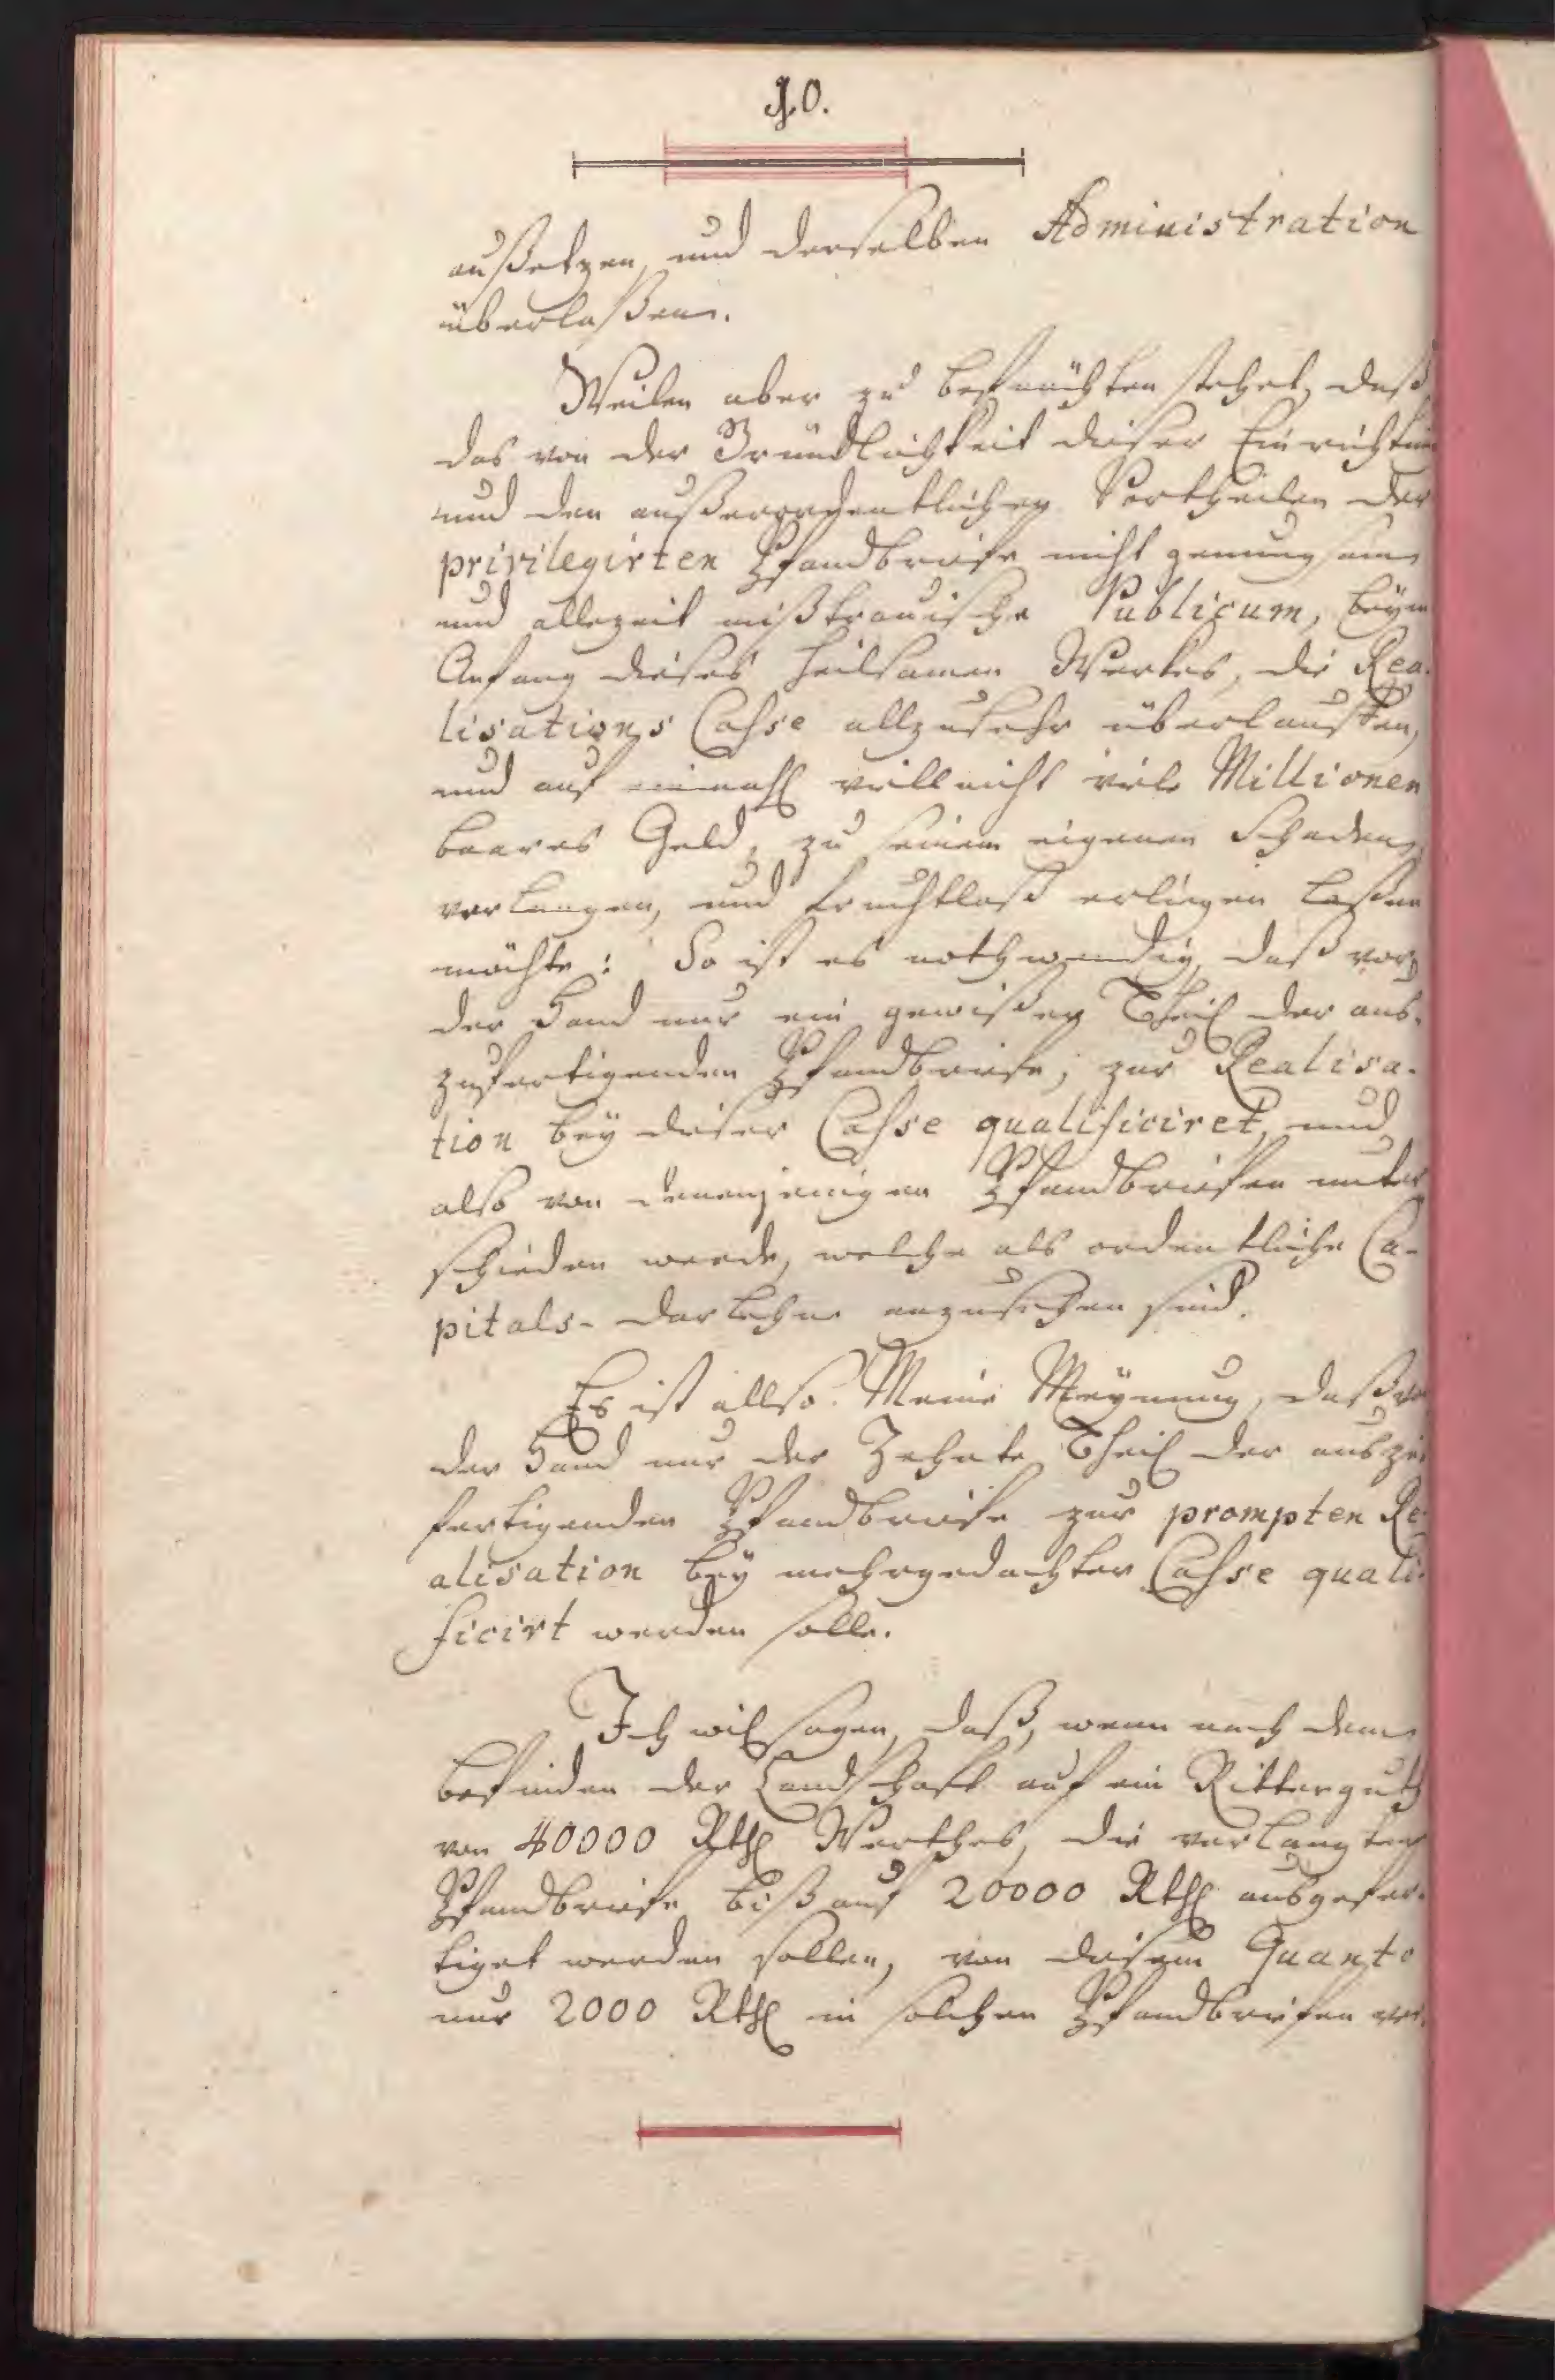 10.
außetzen, und derselben Administration
überlaßen.
Weilen aber zu befürchten stehet, daß
das von der Gründlichkeit dieser Einrichtun
und den außerordentlichen Vortheilen der
privilegirten Pfandbriefe nicht genung
und allezeit mißtrauische Publicum, beym
Anfang dieses heilsamen Werkes, die Rea-
lisations Casse allzusehr überlauffen,
und auf einmahl villeicht viele Millionen
baares Geld, zu seinem eigenen Schaden
verlangen, und fruchtloß erliegen laßen
möchte: So ist es nothwendig, daß vor
der Hand nur ein gewißer Theil der aus-
zufertigenden Pfandbriefe, zur Realisa-
tion bey dieser Casse qualificiret, und
also von denenjenigen Pfandbriefen unter
schieden werde, welche als ordentliche Ca-
pitals- Darlehne anzusehen sind.
Es ist allso Meine Meynung, daß vo
der Hand nur der Zehnte Theil der auszu
fertigenden Pfandbriefe zur prompten Re-
alisation bey mehrgedachter Casse quali-
ficirt werden solle.
Ich will sagen, daß, wenn nach dem
Befinden der Landschaft auf ein Ritterguth
von 40000 Rthl Werthes, die verlangten
Pfandbriefe biß auf 20000 Rthl ausgefer-
tiget werden sollen, von diesem Quanto
nur 2000 Rthl in solchen Pfandbriefen